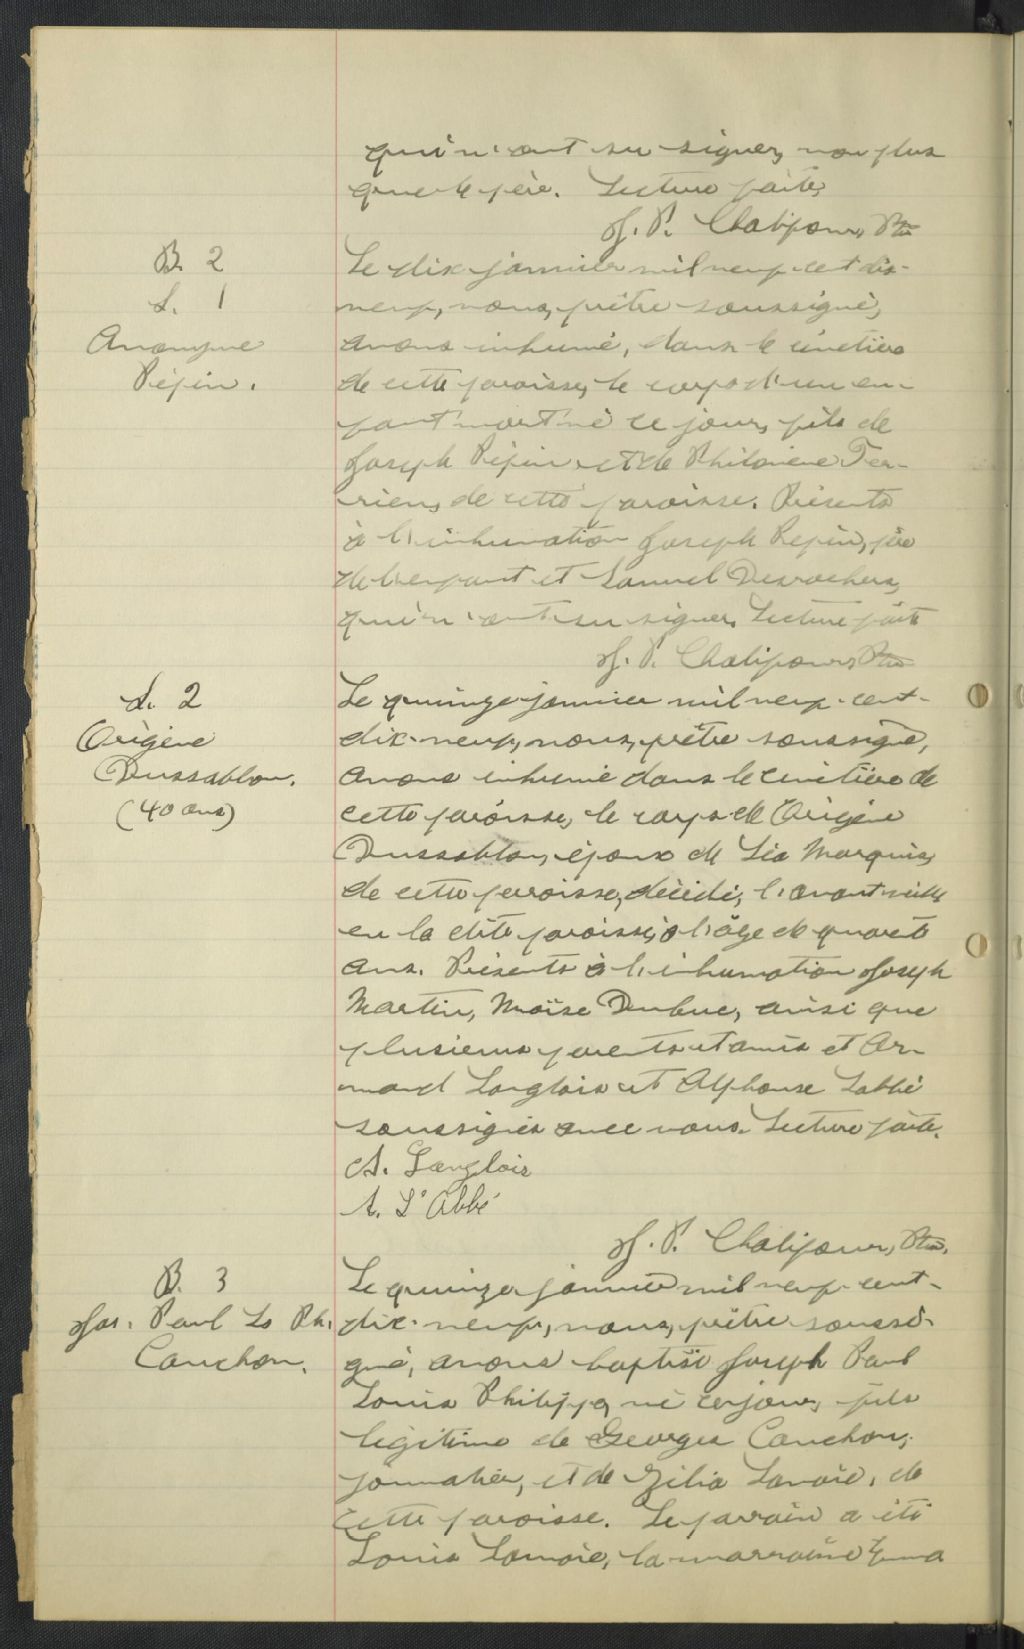 qui n'ont su signer, non plus
que le père. Lecture faite.
J. P. Chalifour, Ptre
B. 2
S. 1
Anonyme
Pépin.
Le dix janvier mil neuf cent dix-
neuf, nous, prêtre soussigné,
avons inhumé, dans le cimetière
de cette paroisse, le corps d'un en-
fant mort-né ce jour, fils de
Joseph Pépin et de Philomène Ter-
rien, de cette paroisse. Présents
à l'inhumation Joseph Pepin, père
de l'enfant et Samuel Desrochers,
qui n'ont su signer. Lecture faite
J. P. Chalifour, Ptre
S. 2
Origène
Dussablon.
(40 ans)
Le quinze janvier mil neuf-cent-
dix-neuf, nous, prêtre soussigné,
avons inhumé dans le cimetière de
cette paroisse, le corps de Origène
Dussablon, époux de Léa Marquis,
de cette paroisse, décédé, l'avant-veille
en la dite paroisse, à l'âge de quarante
ans. Présents à l'inhumation Joseph
Martin, Moïse Dubuc, ainsi que
plusieurs parents et amis et Ar-
mand Langlois et Alphonse Labbé
soussignés avec nous. Lecture faite.
A. Langlois
A. L'Abbé
J. P. Chalifour, Ptre.
B. 3
Jos. Paul Ls Ph.
Cauchon.
Le quinze janvier mil neuf-cent-
dix-neuf, nous, prêtre soussi-
gné, avons baptisé Joseph Paul
Louis Philippe, né ce jour, fils
légitime de Georges Cauchon,
journalier, et de Zélia Lavoie, de
cette paroisse. Le parrain a été
Louis Lavoie, la marraine Emma